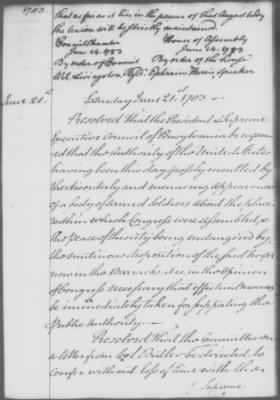 1783.
that as far as it lies in the power of that August body
the Union will be strictly maintained
Council Chamber House of Assembly
June 14. 1783 June 14. 1783
By order of Council By order of the House
Wil. Livingston Presidt. Ephraim Harris Speaker
June 21st. Saturday June 21st. 1783 —
Resolved that the President & Supreme
Executive Council of Pensylvania be informed
that the Authority of the United States
having been this day grossly insulted by
the disorderly and menacing appearance
of a body of armed Soldiers about the place
within which Congress were assembled, &
the peace of this City being endangered by
the mutinous disposition of the said troops
now in the Barracks, it is, in the opinion
of Congress necessary that effectual measures
be immediately taken for supporting the
Public Authority —
Resolved that the Committee on
a letter from Col. Butler be directed to
confer without loss of time with the
Supreme